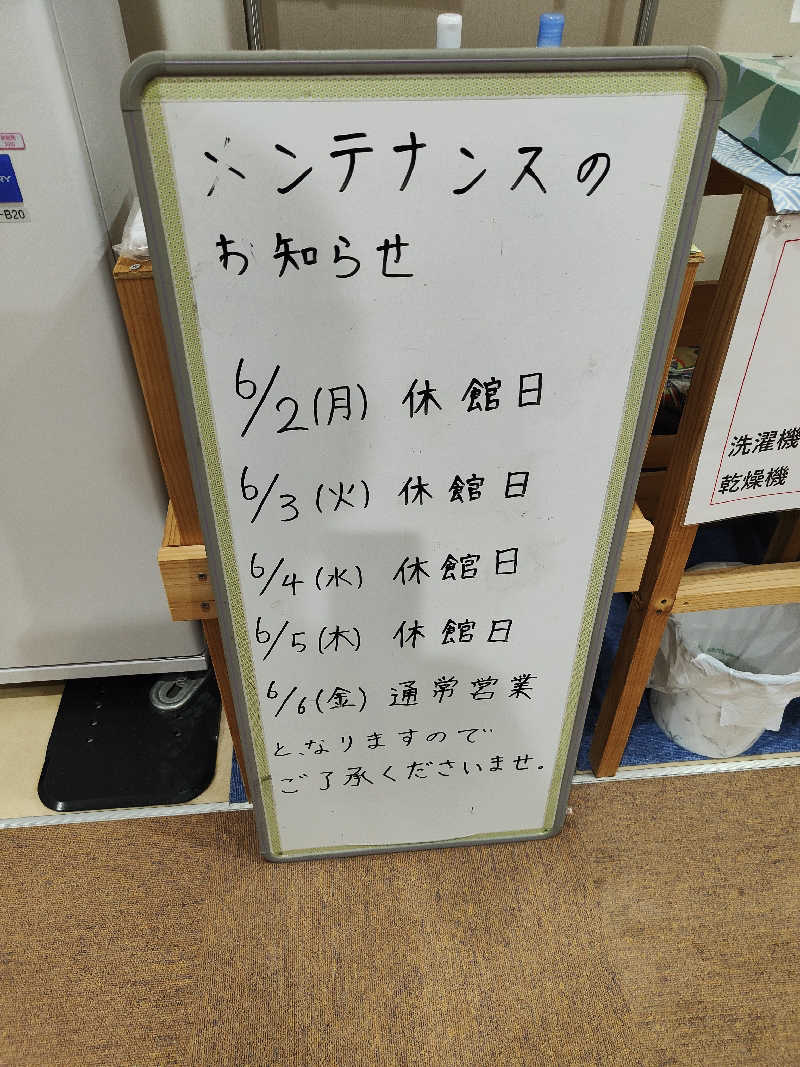 メンテナンスの
お知らせ
6/2(月) 休館日
6/3(火) 休館日
6/4(水) 休館日
6/5(木) 休館日
6/6(金) 通常営業
となりますので
ご了承くださいませ。
洗濯機
乾燥機
-B20